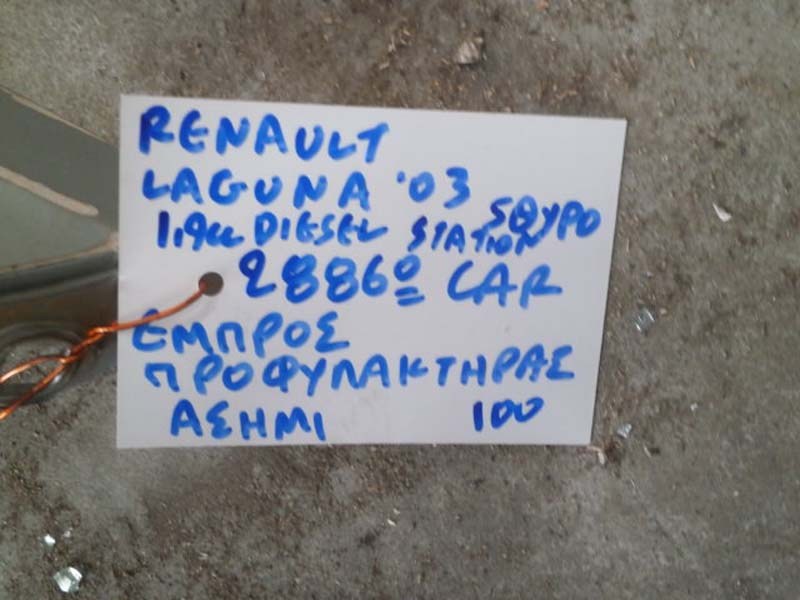 RENAULT
LAGUNA '03
5ΘΥΡΟ
1.9cc DIESEL STATION
2886º CAR
ΕΜΠΡΟΣ
ΠΡΟΦΥΛΑΚΤΗΡΑΣ
ΑΣΗΜΙ 100